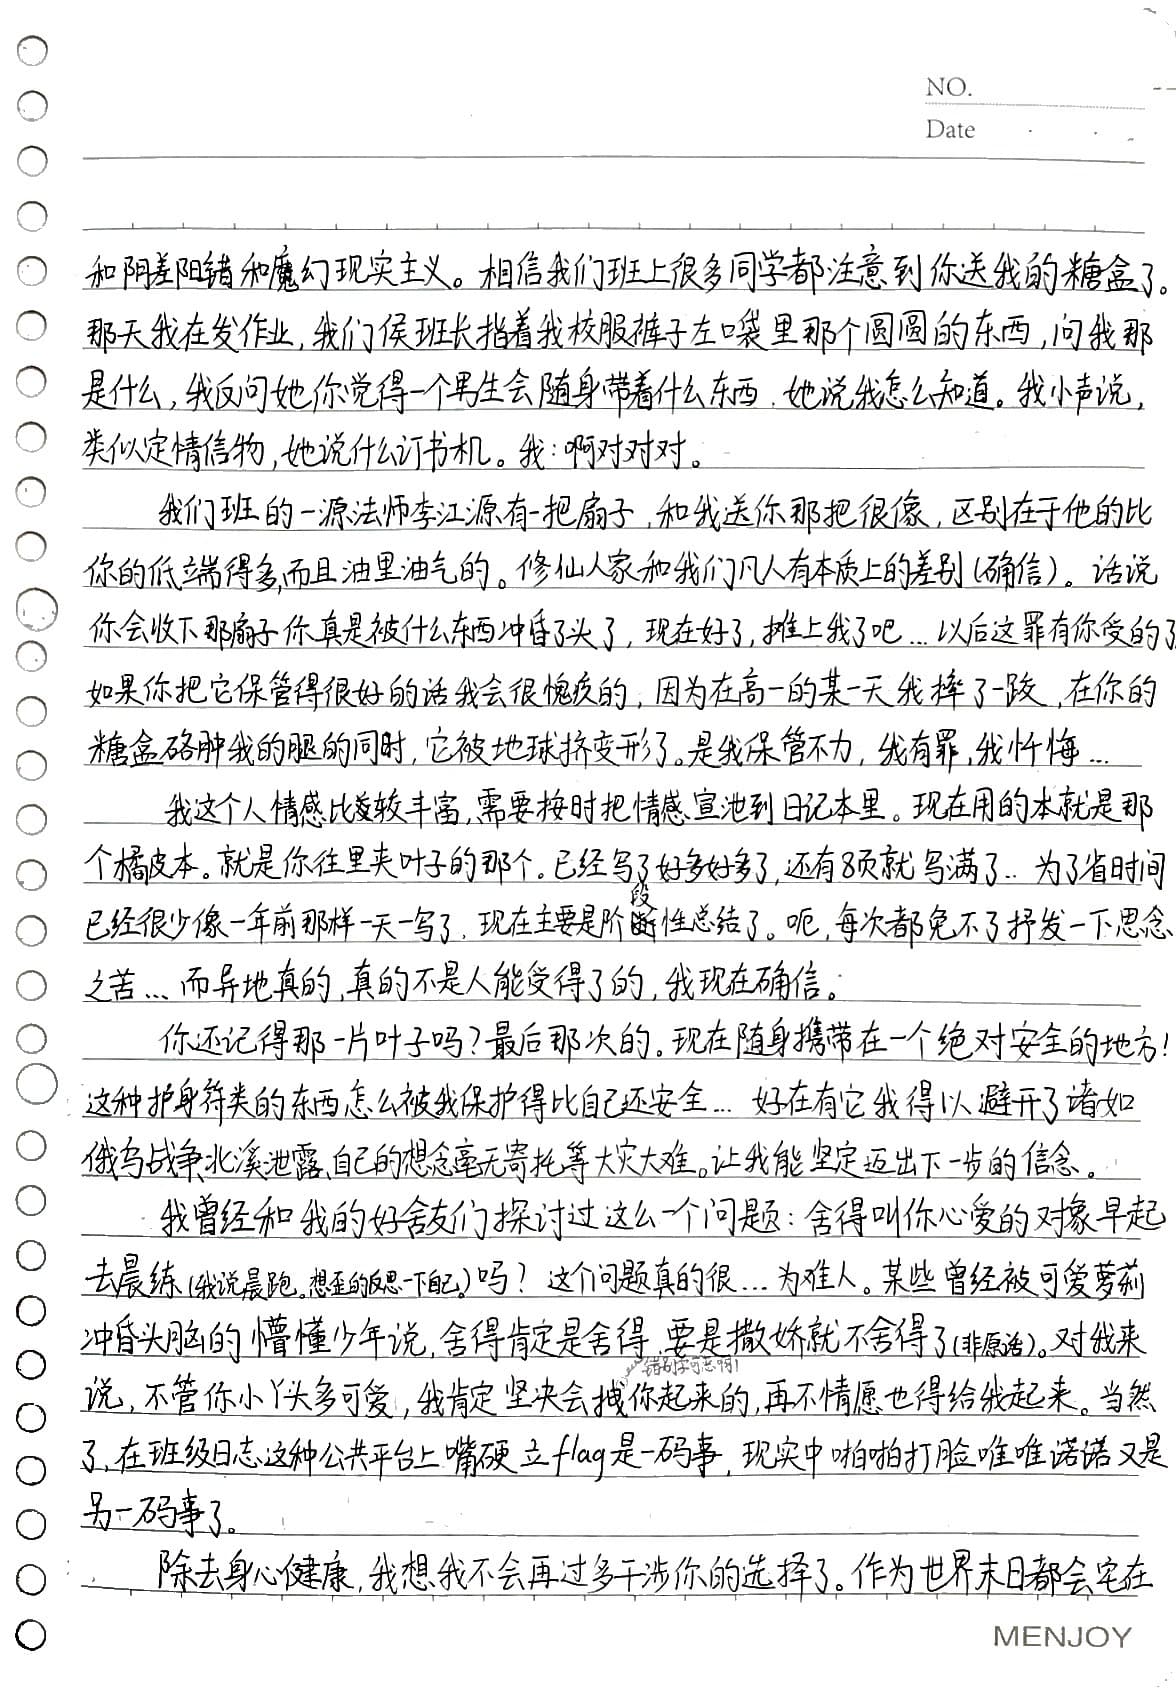 NO.
Date
和阴差阳错和魔幻现实主义。相信我们班上很多同学都注意到你送我的糖盒了。
那天我在发作业,我们侯班长指着我校服裤子左口袋里那个圆圆的东西,问我那
是什么,我反问她你觉得一个男生会随身带着什么东西,她说我怎么知道。我小声说,
类似定情信物,她说什么订书机。我:啊对对对。
我们班的一源法师李江源有一把扇子,和我送你那把很像,区别在于他的比
你的低端得多,而且油里油气的。修仙人家和我们凡人有本质上的差别(确信)。话说
你会收下那扇子你真是被什么东西冲昏了头了,现在好了,摊上我了吧...以后这罪有你受的了
如果你把它保管得很好的话我会很愧疚的,因为在高一的某一天我摔了一跤,在你的
糖盒硌肿我的腿的同时,它被地球挤变形了。是我保管不力,我有罪,我忏悔...
我这个人情感比较丰富,需要按时把情感宣泄到日记本里。现在用的本就是那
个橘皮本。就是你往里夹叶子的那个。已经写了好多好多了,还有8页就写满了..为了省时间
已经很少像一年前那样一天一写了,现在主要是阶段性总结了。呃,每次都免不了抒发一下思念
之苦...而异地真的,真的不是人能受得了的,我现在确信。
你还记得那一片叶子吗?最后那次的。现在随身携带在一个绝对安全的地方!
这种护身符类的东西怎么被我保护得比自己还安全...好在有它我得以避开了诸如
俄乌战争,北溪泄露,自己的想念毫无寄托等大灾大难。让我能坚定迈出下一步的信念。
我曾经和我的好舍友们探讨过这么一个问题:舍得叫你心爱的对象早起
去晨练(我说晨跑。想歪的反思一下自己。)吗?这个问题真的很...为难人。某些曾经被可爱萝莉
冲昏头脑的懵懂少年说,舍得肯定是舍得,要是撒娇就不舍得了(非原话)。对我来
错别字可恶啊!
说,不管你小丫头多可爱,我肯定坚决会拽你起来的,再不情愿也得给我起来。当然
了,在班级日志这种公共平台上嘴硬立flag是一码事,现实中啪啪打脸唯唯诺诺又是
另一码事了。
除去身心健康,我想我不会再过多干涉你的选择了。作为世界末日都会宅在
MENJOY